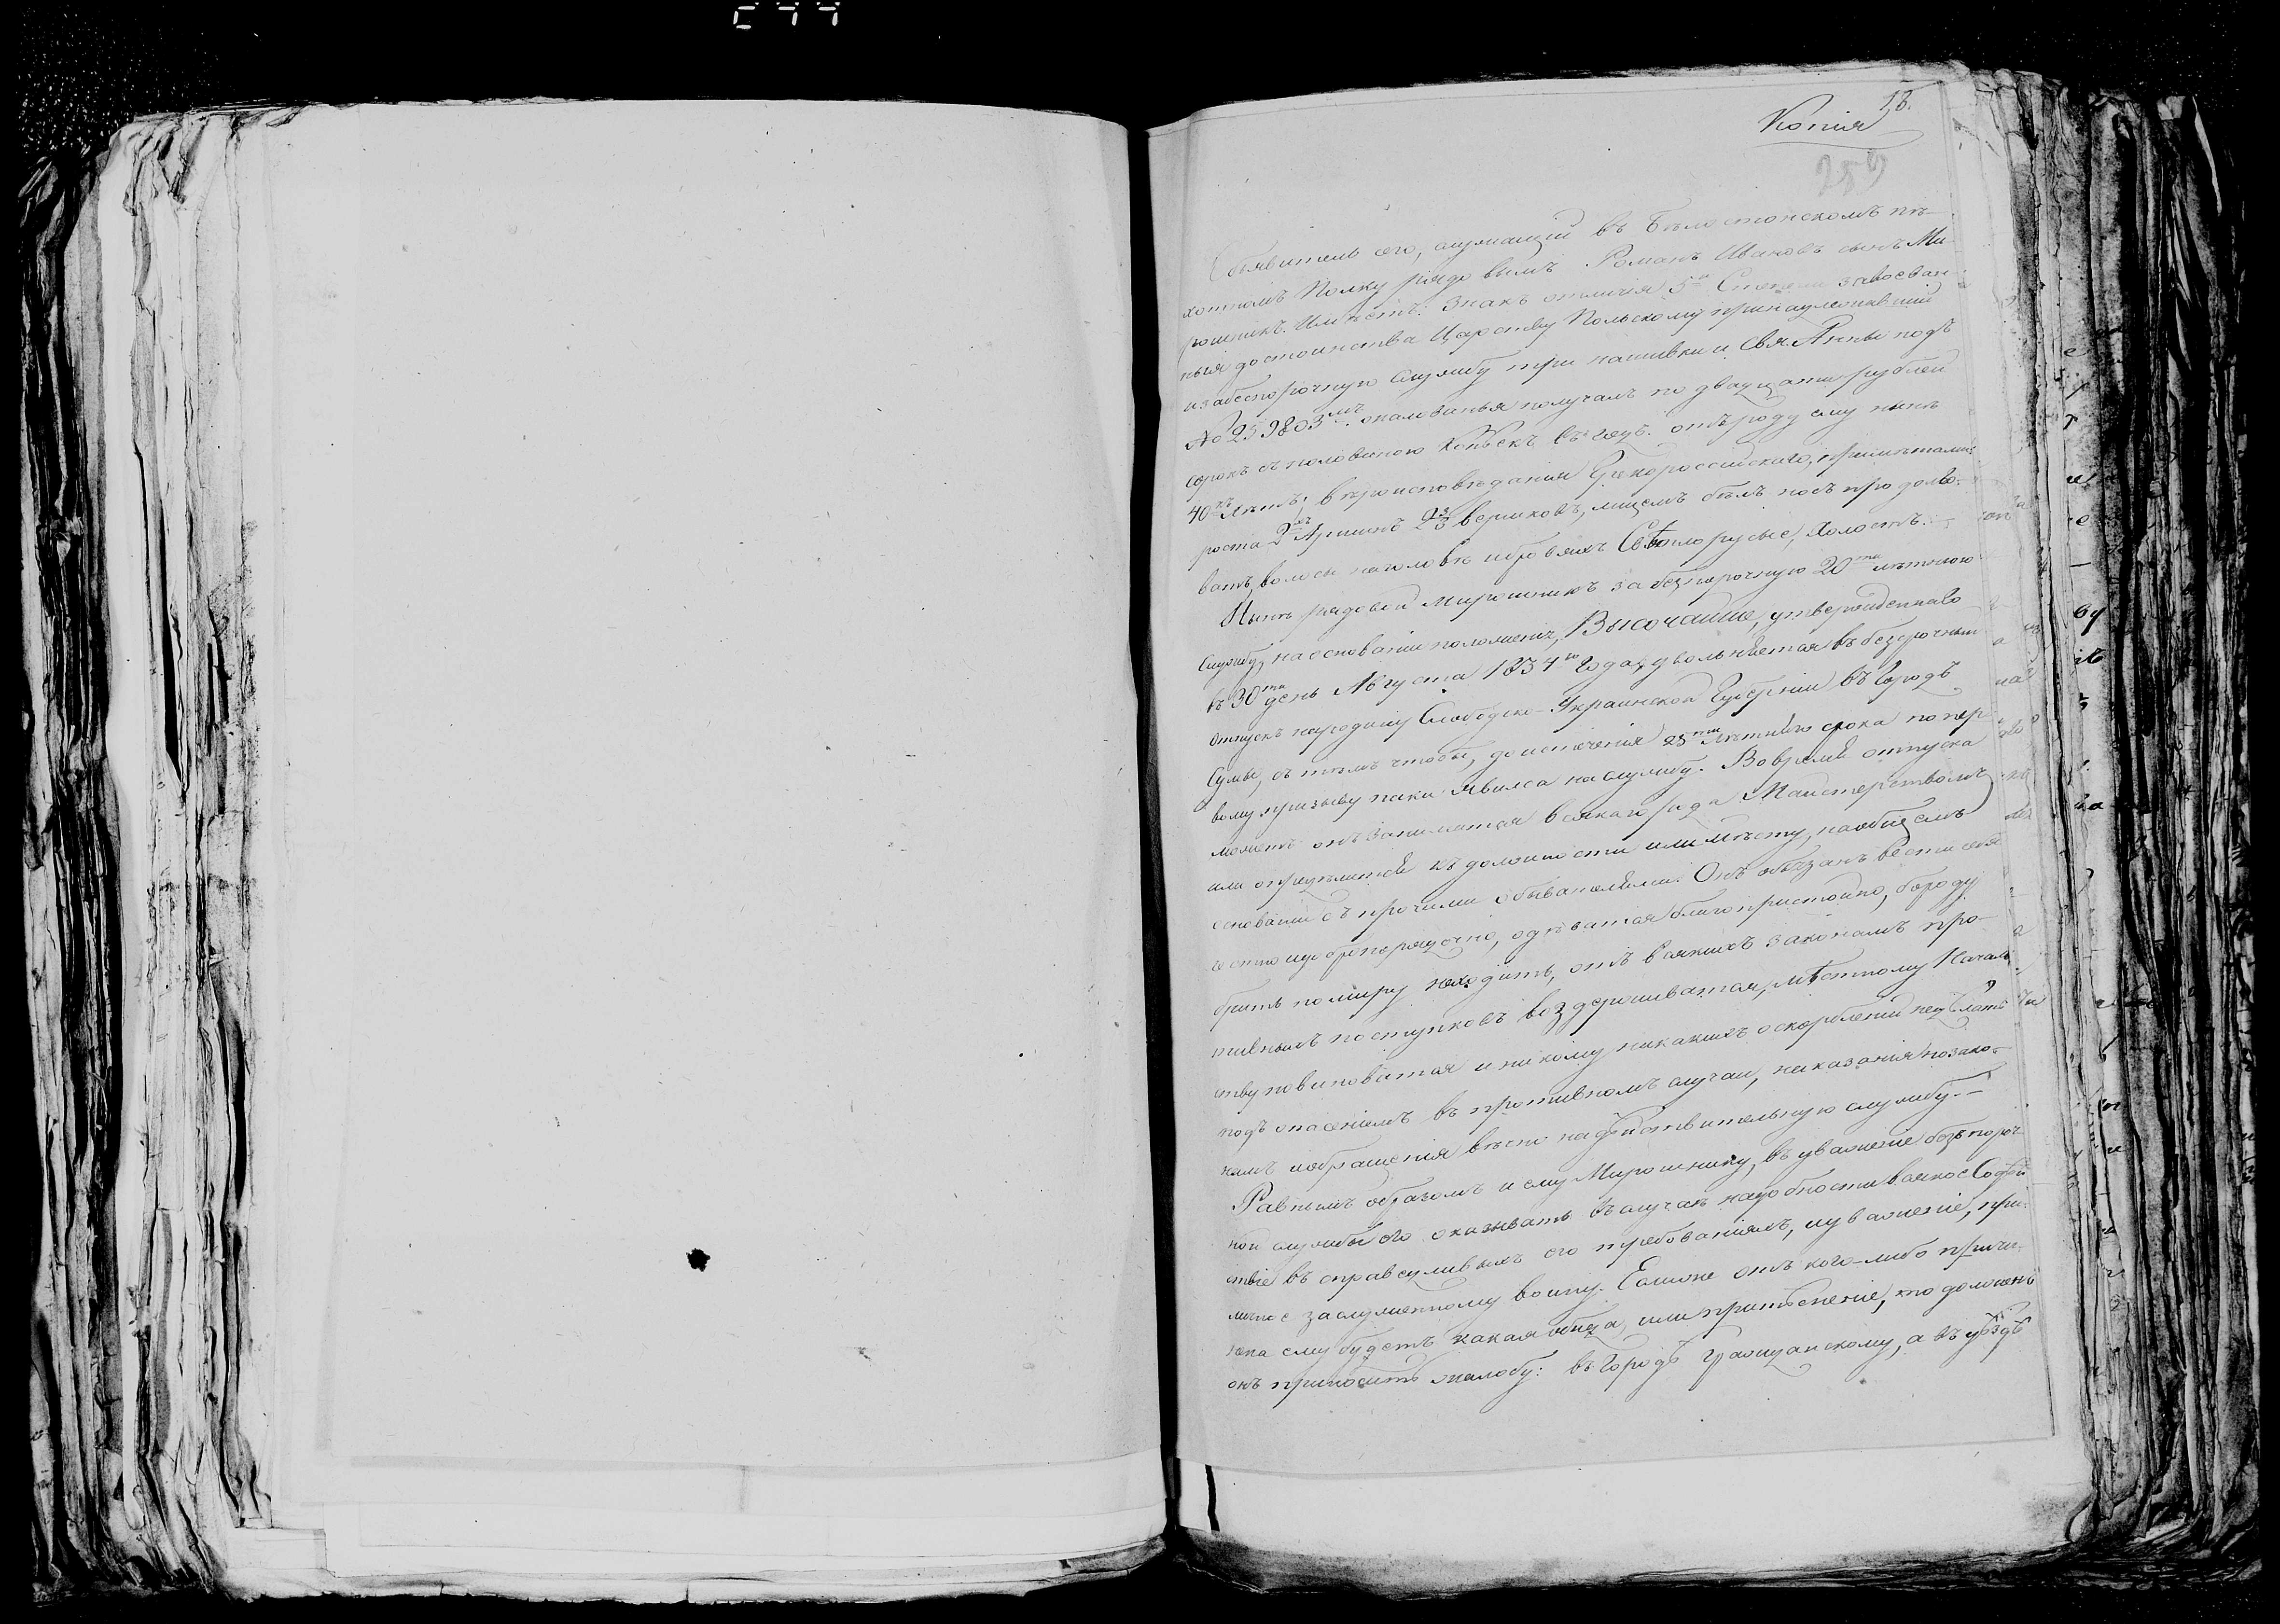 18.
Копия
259
Объявитель сего, служащій въ Бѣлостокскомъ пѣ-
хотномъ Полку рядовымъ Романъ Ивановъ сынъ Ми-
рошникъ. Имѣетъ: Знакъ отличія 5й Степени завоеван-
ныя достоинства Царству Польскому принадлежавшій
и за безпорочную службу три нашивки и Свя. Анны подъ
№ 259803мъ. жалованья получалъ по двадцати рублей
сорокъ съ половиною Копѣекъ въ годъ. отъ роду ему нынѣ
40тъ лѣтъ; вѣроисповѣданія Грекороссійскаго, примѣтами:
роста 2хъ Аршинъ 2 3/8 вершковъ, лицемъ бѣлъ носъ продолго-
ватъ, волосы на головѣ и бровяхъ Свѣтлорусые, Холостъ. —
Нынѣ рядовой Мирошникъ за безпорочную 20ти лѣтнюю
Службу, на основаніи положенія, Высочайше, утвержденнаго
въ 30ти день Августа 1834го Года, увольняется въ безсрочный
отпускъ на родину Слободско-Украинской Губерніи въ Городъ
Сумы, съ тѣмъ чтобы, до истеченія 25ти лѣтняго срока по пер-
вому призыву паки явился на службу. Во время отпуска
можетъ онъ заниматся всякаго рода Мастерствомъ
или опредѣлится къ должности или мѣсту, на общемъ
основаніи съ прочими обывателями. Онъ обязанъ вести себя
честно и добропорядочно, одѣватся благопристойно, бороду
брить по миру неходить, отъ всякихъ законамъ про-
тивныхъ поступковъ воздерживатся, мѣстному Началь-
ству повиноватся и никому никакихъ оскорбленій недѣлать
подъ опасеніемъ въ противномъ случаи, наказанія позако-
намъ и обращенія вѣчно на дѣйствительную службу. —
Равнымъ образомъ и ему Мирошнику, въ уваженіе безпороч-
ной службы его оказывать въ случаѣ надобности всякое Содѣй-
ствіе въ справедливыхъ его требованіямъ, и уваженіе, при-
личное заслуженному воину. Еслиже отъ кого-либо причи-
нена ему будетъ какая обида, или притѣсненіе, то долженъ
онъ приносить жалобу: въ Городѣ Гражданскому, а въ уѣздѣ